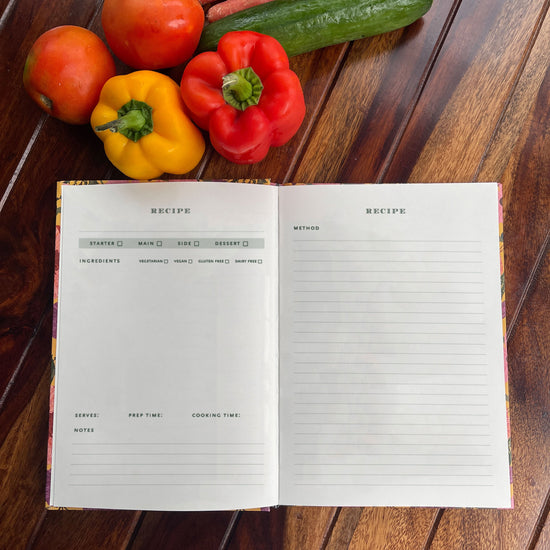 RECIPE
STARTER MAIN SIDE DESSERT
INGREDIENTS VEGETARIAN VEGAN GLUTEN FREE DAIRY FREE
SERVES: PREP TIME: COOKING TIME:
NOTES
RECIPE
METHOD